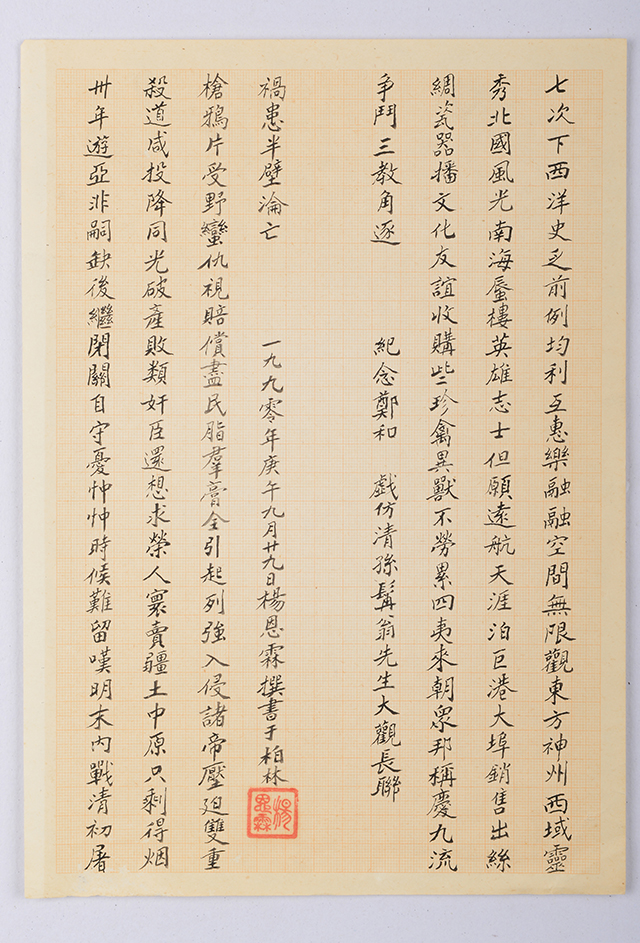 七次下西洋史乏前例均利互惠樂融融空間無限觀東方神州西域靈
秀北國風光南海蜃樓英雄志士但願遠航天涯泊巨港大埠銷售出絲
綢瓷器播文化友誼收購些珍禽異獸不勞累四夷來朝眾邦稱慶九流
争鬥三教角逐
紀念鄭和 戲仿清孫髯翁先生大觀長聯
卅年遊亞非嗣缺後繼閉關自守憂忡忡時候難留嘆明末內戰清初屠
殺道咸投降同光破產敗類奸臣還想求榮人寰賣疆土中原只剩得烟
槍鴉片受野蠻仇視賠償盡民脂羣膏全引起列強入侵諸帝壓迫雙重
禍患半壁淪亡
一九九零年庚午九月廿九日楊恩霖撰書于柏林
楊恩霖